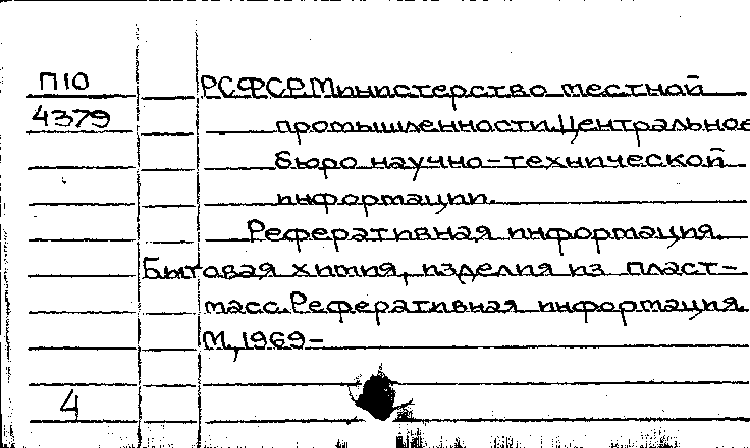 П10 РСФСР.Министерство местной
4379 промышленности.Центральное
бюро научно-технической
информации.
Реферативная информация.
Бытовая химия, изделия из пласт-
масс.Реферативная информация.
М.,1969-
4